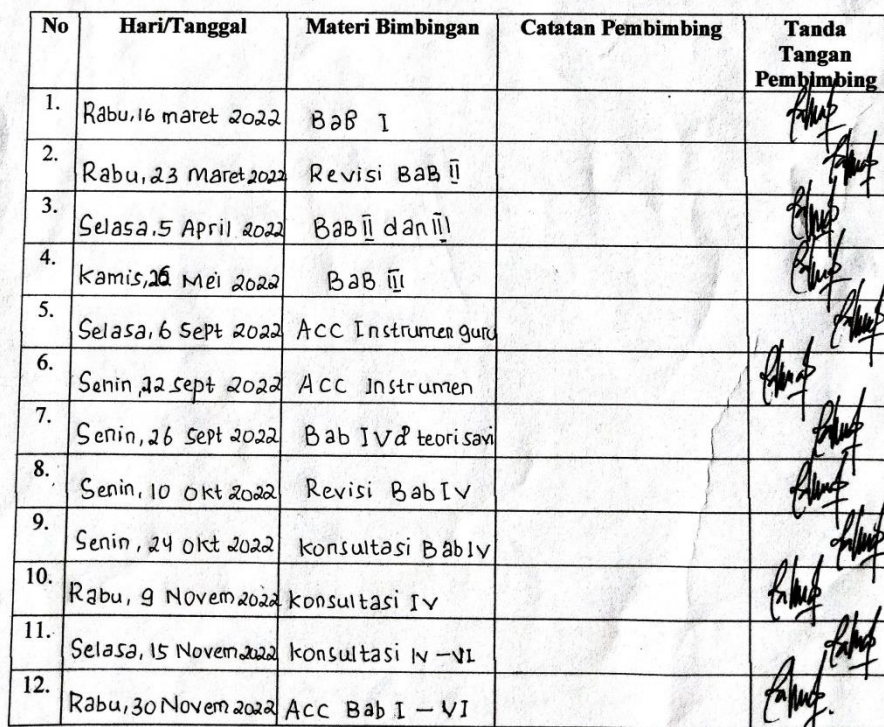 No Hari/Tanggal Materi Bimbingan Catatan Pembimbing Tanda
Tangan
Pembimbing
1. Rabu, 16 maret 2022 BaB I
2. Rabu, 23 Maret 2022 Revisi BaB II
3. Selasa, 5 April 2022 BaB II dan III
4. Kamis, 26 Mei 2022 BaB III
5. Selasa, 6 Sept 2022 ACC Instrumen guru
6. Senin, 22 sept 2022 ACC Instrumen
7. Senin, 26 Sept 2022 Bab IV & teori savi
8. Senin, 10 Okt 2022 Revisi Bab IV
9. Senin, 24 Okt 2022 konsultasi Bab IV
10. Rabu, 9 Novem 2022 konsultasi IV
11. Selasa, 15 Novem 2022 konsultasi IV - VI
12. Rabu, 30 Novem 2022 ACC Bab I - VI